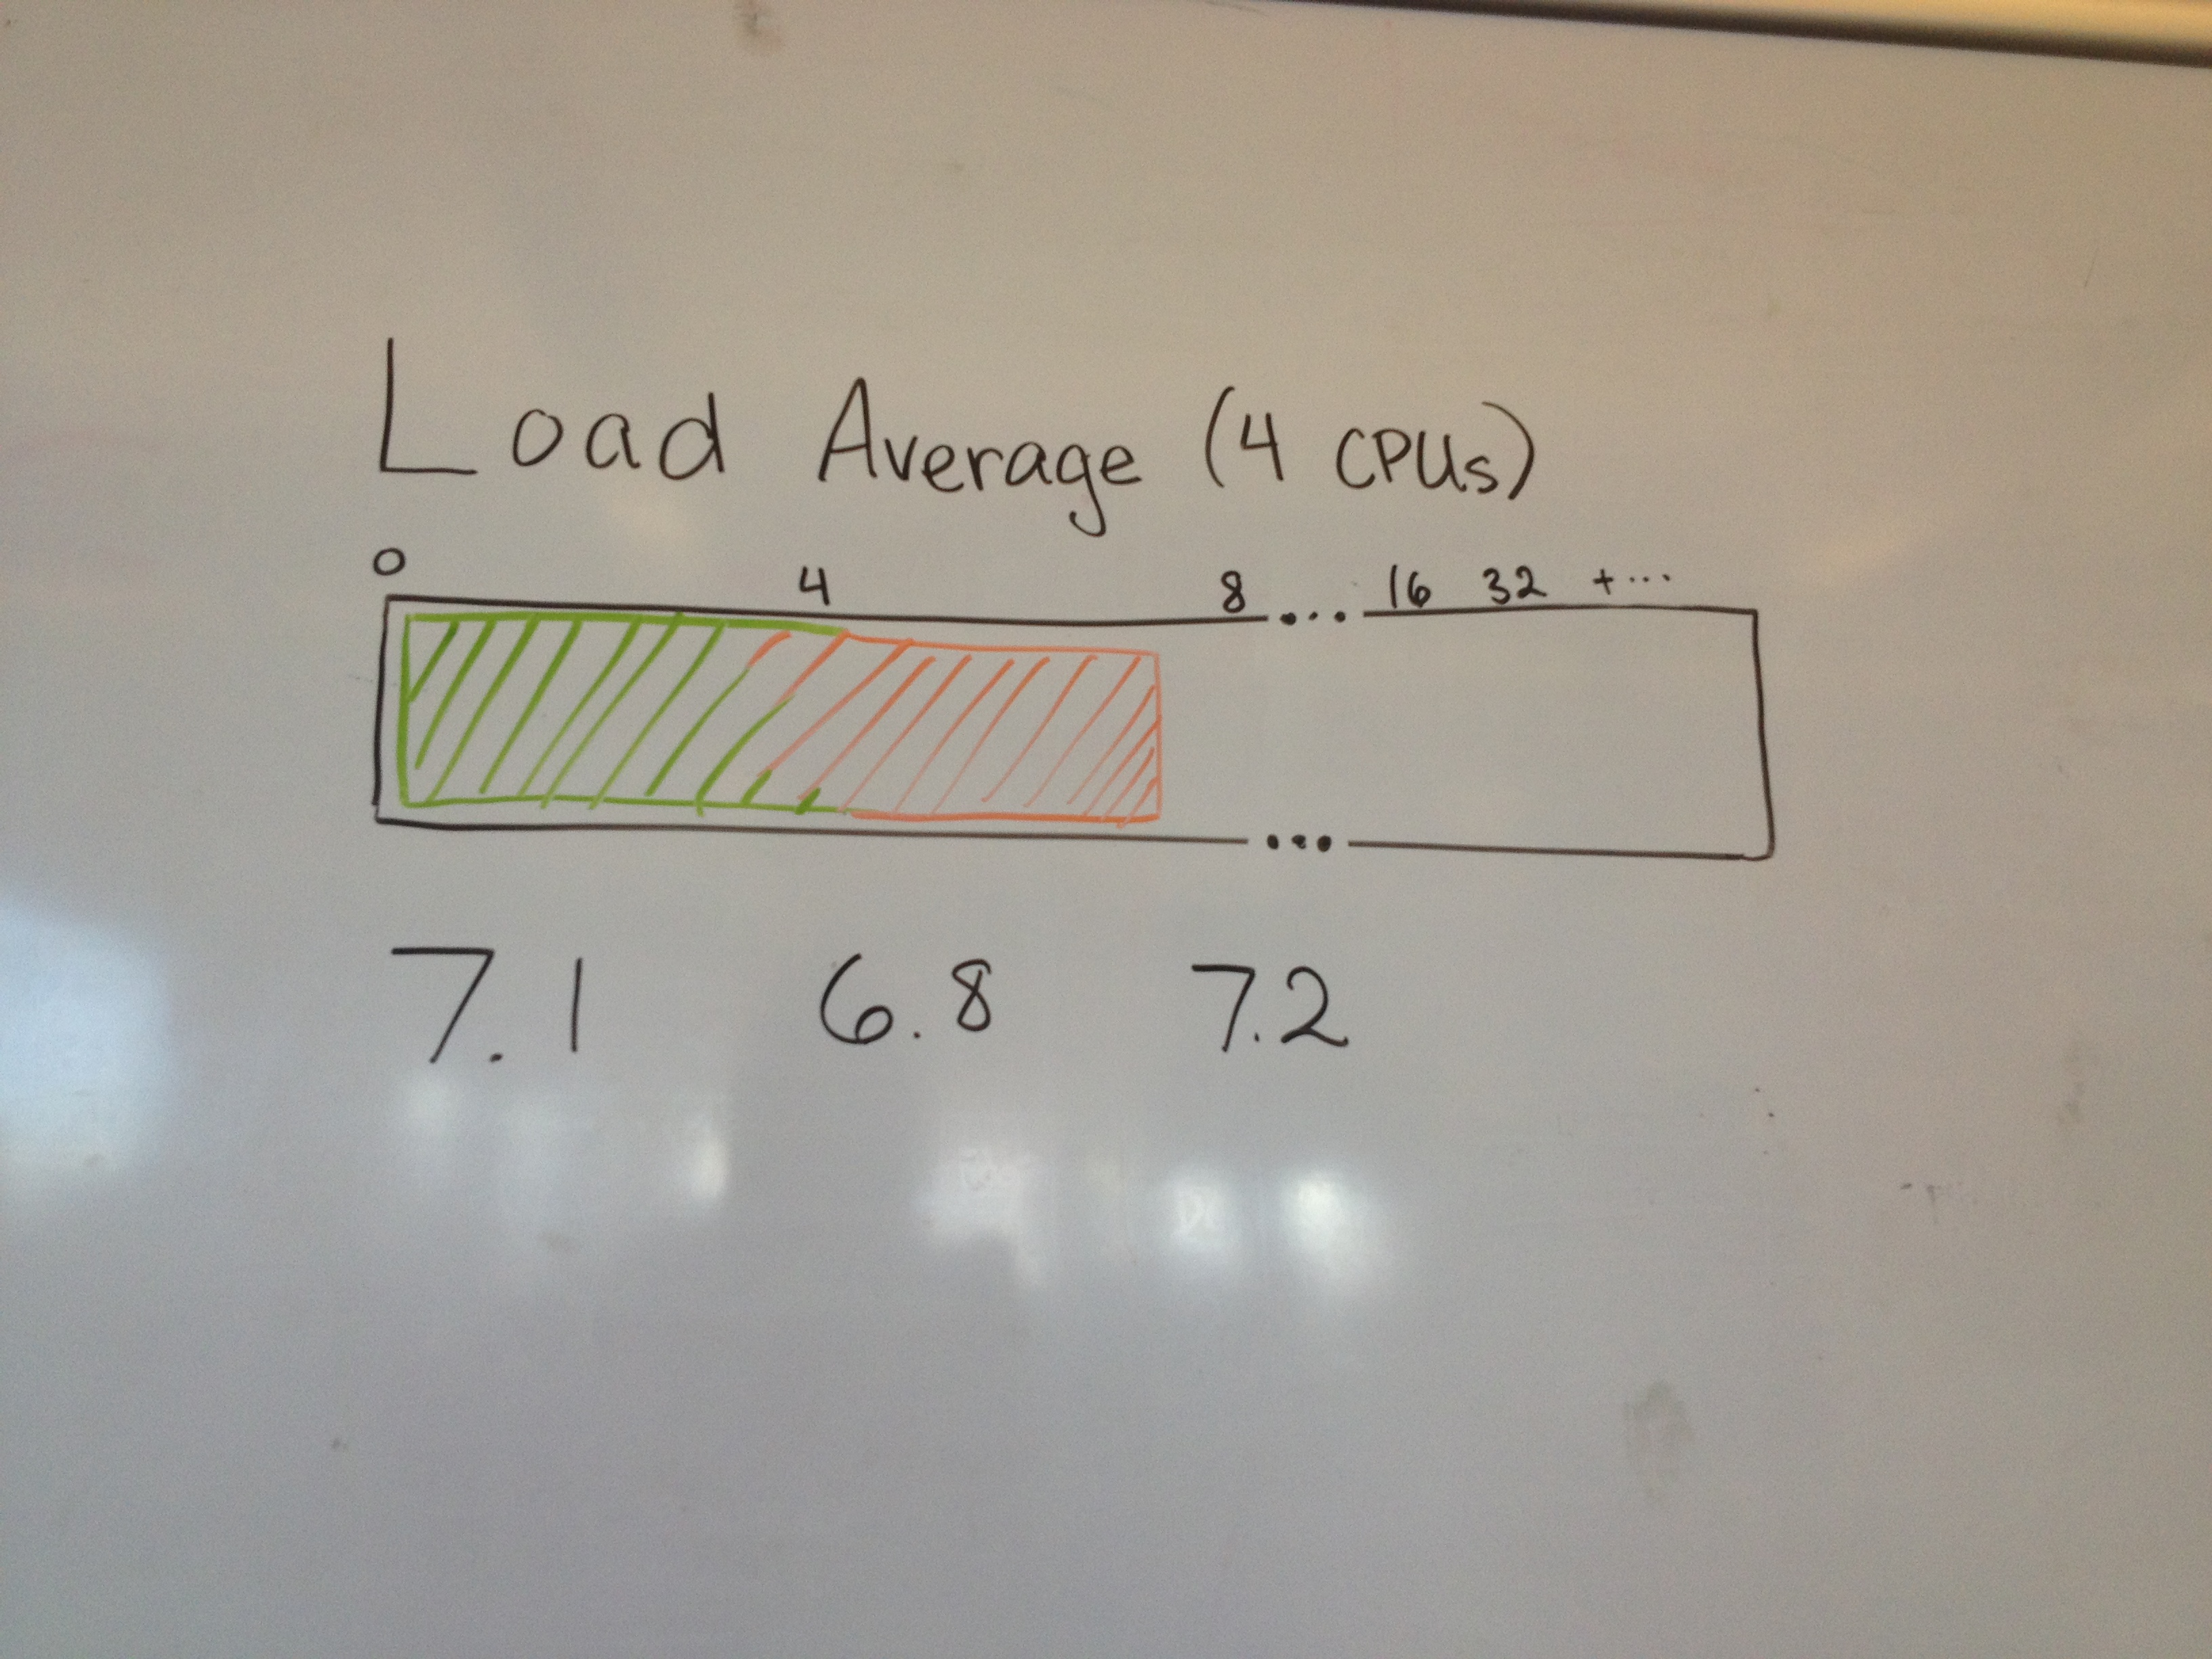 Load Average (4 CPUs)
0 4 8 ... 16 32 + ...
...
7.1 6.8 7.2